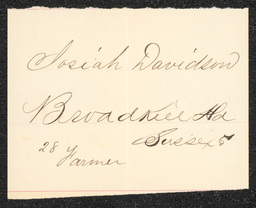 Josiah Davidson
Broadkill Hd
Sussex
28 y
Farmer